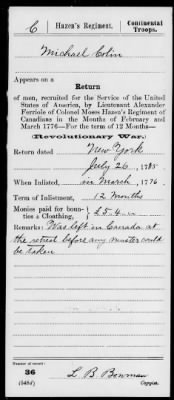 C
Hazen's Regiment.
Continental
Troops.
Michael Colin
Appears on a
Return
of men, recruited for the Service of the United
States of America, by Lieutenant Alexander
Ferriole of Colonel Moses Hazen's Regiment of
Canadians in the Months of February and
March 1776—For the term of 12 Months—
Revolutionary War:
Return dated New York
July 26, 1785
When Inlisted, in March, 1776.
Term of Inlistment, 12 Months
Monies paid for boun-
ties & Cloathing, £5.4
Remarks: Was left in Canada at
the retreat before any muster could
be taken
Number of record:
36
(545d)
L. B. Bowman
Copyist.